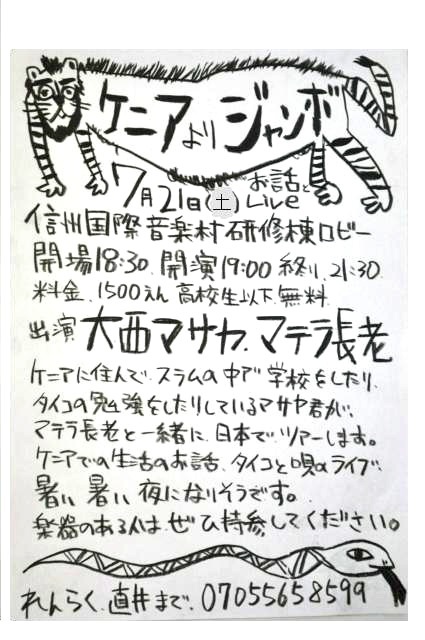 ケニアより ジャンボ
7月21日(土) お話と Live
信州国際音楽村研修棟ロビー
開場18:30. 開演19:00 終り. 21:30.
料金. 1500えん 高校生以下. 無料.
出演 大西マサヤ. マテラ長老
ケニアに住んで. スラムの中で 学校をしたり.
タイコの勉強をしたりしているマサヤ君が.
マテラ長老と一緒に. 日本でツアーします。
ケニアでの生活のお話. タイコと唄のライブ.
暑い 暑い 夜になりそうです。
楽器のある人は ぜひ持参してください。
れんらく. 直井まで. 07055658599